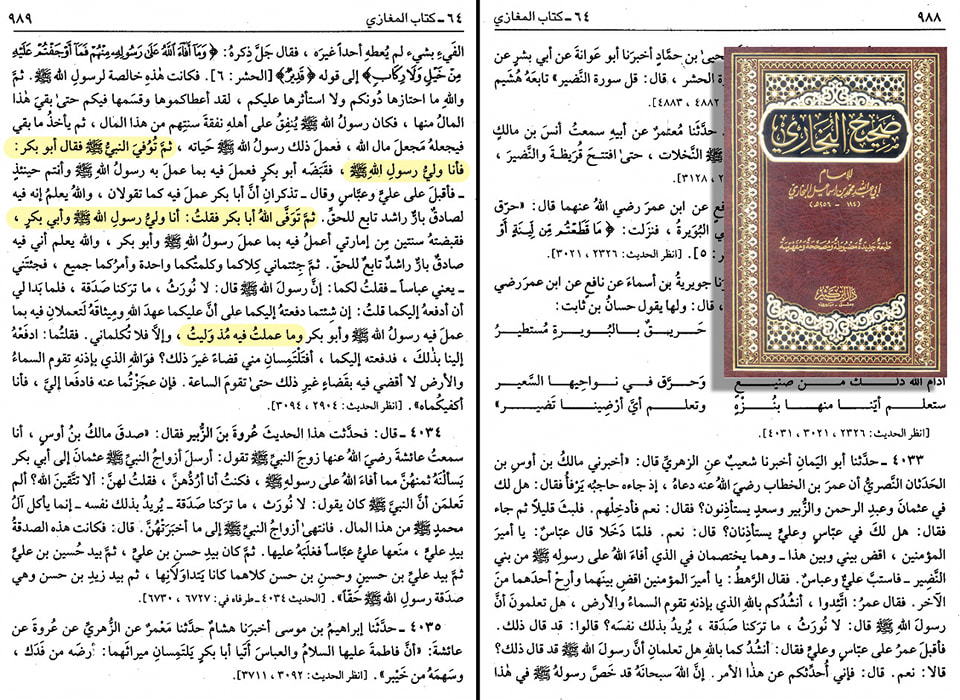 ٩٨٨
٦٤ - كتاب المغازي
يحيىٰ بن حمَّاد أخبرنا أبو عَوانة عن أبي بشر عن
الحشر ، قال: قل سورة النَّضير» تابعَهُ هُشَيم
٤٨٨٢ ، ٤٨٨٣].
حدَّثنا مُعتمرٌ عن أبيهِ سمعتُ أنسَ بن مالكٍ
ﷺ النَّخلات ، حتىٰ افتتح قُريظةَ والنَّضير ،
، ٣١٢٨].
عن ابن عمرَ رضي الله عنهما قال: «حرَّق
البُوَيرة ، فنزلَت: ﴿ مَا قَطَعْتُم مِّن لِّينَةٍ أَوْ
٥]. [انظر الحديث: ٢٣٢٦ ، ٣٠٢١].
جويريةُ بن أسماءَ عن نافعٍ عن ابن عمرَ رضيَ
، قال: ولها يقول حسانُ بن ثابت:
حَريــقٌ بــالبُــويــرةِ مُستَطيــرُ
صحيح البخاري
للإمام
أبي عبد الله محمد بن إسماعيل البخاري
(١٩٤ - ٢٥٦هـ)
طبعة جديدة مضبوطة ومصححة ومفهرسة
دار ابن كثير
أدام الله ذلــك مــن صنيــعٍ وَحرَّق فــي نــواحيهــا السَّعيــر
ستعلــم أيُّنــا منهــا بنُــزْهٍ وتعلــم أيَّ أرْضِينــا تَضيــر»
[انظر الحديث: ٢٣٢٦ ، ٣٠٢١ ، ٤٠٣١].
٤٠٣٣ - حدَّثنا أبو اليمَانِ أخبرنا شعيبٌ عنِ الزهريِّ قال: «أخبرني مالكُ بن أوس بن
الحَدَثان النَّصريُّ أن عمرَ بن الخطاب رضيَ اللهُ عنه دعاهُ ، إذ جاءه حاجبُه يَرْفأ فقال: هل لك
في عثمانَ وعبدِ الرحمن والزُّبير وسعدٍ يستأذِنون؟ فقال: نعم فأدخِلْهم. فلبث قليلاً ثم جاء
فقال: هل لكَ في عبّاسٍ وعليٍّ يستأذِنان؟ قال: نعم. فلمّا دَخَلا قال عبّاسٌ: يا أميرَ
المؤمنين ، اقضِ بيني وبين هذا ـ وهما يختصمانِ في الذي أفاءَ اللهُ على رسولهِ ﷺ من بني
النَّضير ـ فاستبَّ عليٌّ وعباسٌ. فقال الرَّهطُ: يا أميرَ المؤمنين اقضِ بينَهما وأرِحْ أحدَهما منَ
الآخر. فقال عمرُ: اتَّئِدوا ، أنشُدُكم بالله الذي بإذنهِ تقوم السماءُ والأرض ، هل تعلمونَ أنَّ
رسولَ اللهِ ﷺ قال: لا نُورَثُ ، ما تركنا صَدَقة ، يُريدُ بذلك نفسَه؟ قالوا: قد قال ذلك.
فأقبلَ عمرُ على عبّاسٍ وعليٍّ فقال: أنشُدُ كما باللهِ هل تعلمانِ أنَّ رسولَ اللهِ ﷺ قد قال ذلك؟
قالا: نعم. قال: فإني أُحدِّثكم عن هذا الأمر. إنَّ اللهَ سبحانَهُ قد خَصَّ رسولَهُ ﷺ في هٰذا
٦٤ - كتاب المغازي
٩٨٩
الفَيءِ بشيء لم يُعطِهِ أحداً غيرَه ، فقال جَلَّ ذِكرهُ: ﴿ وَمَآ أَفَآءَ ٱللَّهُ عَلَىٰ رَسُولِهِۦ مِنْهُمْ فَمَآ أَوْجَفْتُمْ عَلَيْهِ
مِنْ خَيْلٍ وَلَا رِكَابٍ﴾ إلى قوله ﴿ قَدِيرٌ﴾ [الحشر: ٦]. فكانت هٰذهِ خالصة لرسولِ اللهِ ﷺ. ثمَّ
واللهِ ما احتازها دُونكم ولا استأثرها عليكم ، لقد أعطاكموها وقسَمها فيكم حتىٰ بقيَ هٰذا
المالُ منها ، فكان رسولُ اللهِ ﷺ يُنفِقُ على أهلهِ نفقةَ سنتِهم من هذا المال ، ثم يأخذُ ما بقي
فيجعلهُ مَجعلَ مالِ الله ، فعملَ ذلك رسولُ اللهِ ﷺ حياته ، ثمَّ تُوُفِّيَ النبيُّ ﷺ فقال أبو بكر:
فأنا وليُّ رسولِ اللهِ ﷺ ، فقبَضَه أبو بكرٍ فعملَ فيه بما عمل به رسولُ اللهِ ﷺ وأنتم حينئذٍ
ـ فأقبلَ على عليٍّ وعبّاس وقال ـ تذكرانِ أنَّ أبا بكر عملَ فيه كما تقولان ، والله يعلم إنه فيه
لصادقٌ بارٌّ راشد تابع للحقّ. ثم تَوَفَّى اللهُ أبا بكر فقلتُ: أنا وليُّ رسولِ اللهِ ﷺ وأبي بكرٍ ،
فقبضتهُ سنتين من إمارتي أعملُ فيه بما عملَ رسولُ اللهِ ﷺ وأبو بكر ، والله يعلم أني فيه
صادقٌ بارٌّ راشدٌ تابعٌ للحقِّ. ثمَّ جِئتماني كِلاكما وكلمتُكما واحدة وأمرُكما جميع ، فجئتَني
ـ يعني عباساً ـ فقلتُ لكما: إنَّ رسولَ اللهِ ﷺ قال: لا نُورَثُ ، ما ترَكنا صَدَقة ، فلما بَدا لي
أن أدفعهُ إليكما قلتُ: إن شِئتما دفعتهُ إليكما على أنَّ عليكما عهدَ اللهِ ومِيثاقَهُ لَتعملانِ فيه بما
عملَ فيه رسولُ اللهِ ﷺ وأبو بكرٍ وما عملتُ فيه مُذ وَلِيتُ ، وإلّا فلا تُكلماني. فقلتُما: ادفَعْهُ
إلينا بذٰلكَ ، فدفعته إليكما ، أفتَلْتَمِسانِ مني قضاءً غيرَ ذلك؟ فوَاللهِ الذي بإذنهِ تقومُ السماءُ
والأرض لا أقضي فيه بقضاءٍ غيرِ ذلك حتىٰ تقومَ الساعة. فإن عجَزْتُما عنه فادفَعا إليَّ ، فأنا
أكفيكُماه». [انظر الحديث: ٢٩٠٤ ، ٣٠٩٤].
٤٠٣٤ - قال: فحدَّثت هذا الحديثَ عُروةَ بنَ الزُّبير فقال: «صدقَ مالكُ بنُ أوس ، أنا
سمعتُ عائشةَ رضيَ اللهُ عنها زوجَ النبيِّ ﷺ تقول: أرسلَ أزواجُ النبيِّ ﷺ عثمانَ إلى أبي بكر
يَسألنَهُ ثمنَهُنَّ مما أفاءَ اللهُ على رسولهِ ﷺ ، فكنتُ أنا أردُّهُنَّ ، فقلتُ لهنَّ: ألا تتَّقينَ اللهَ؟ ألم
تَعلمَن أنَّ النبيَّ ﷺ كان يقول: لا نُورَث ، ما ترَكنا صَدَقة ـ يُريدُ بذلك نفسَه ـ إنما يأكلُ آلُ
محمدٍ ﷺ من هذا المال. فانتهىٰ أزواجُ النبيِّ ﷺ إلى ما أخبَرَتْهُنَّ. قال: فكانت هذه الصدقةُ
بيدِ عليٍّ ، منَعها عليٌّ عبَّاساً فغلبَهُ عليها. ثمَّ كان بيدِ حسنِ بن عليٍّ ، ثمَّ بيد حُسين بن عليٍّ
ثمَّ بيد عليِّ بن حسين وحسنِ بن حسن كلاهما كانا يَتداوَلانِها ، ثم بيدِ زيدِ بن حسن وهي
صدقة رسولِ اللهِ ﷺ حَقّاً». [الحديث ٤٠٣٤ - طرفاه في: ٦٧٢٧ ، ٦٧٣٠].
٤٠٣٥ - حدَّثنا إبراهيمُ بن موسى أخبرَنا هشامٌ حدَّثنا مَعْمَرٌ عن الزُّهريِّ عن عُروةَ عن
عائشةَ: «أنَّ فاطمةَ عليها السلام والعباسَ أتَيا أبا بكرٍ يَلتَمِسانِ ميراثَهما: أرضَه من فَدَك ،
وسهمَهُ من خَيْبر». [انظر الحديث: ٣٠٩٢ ، ٣٧١١].